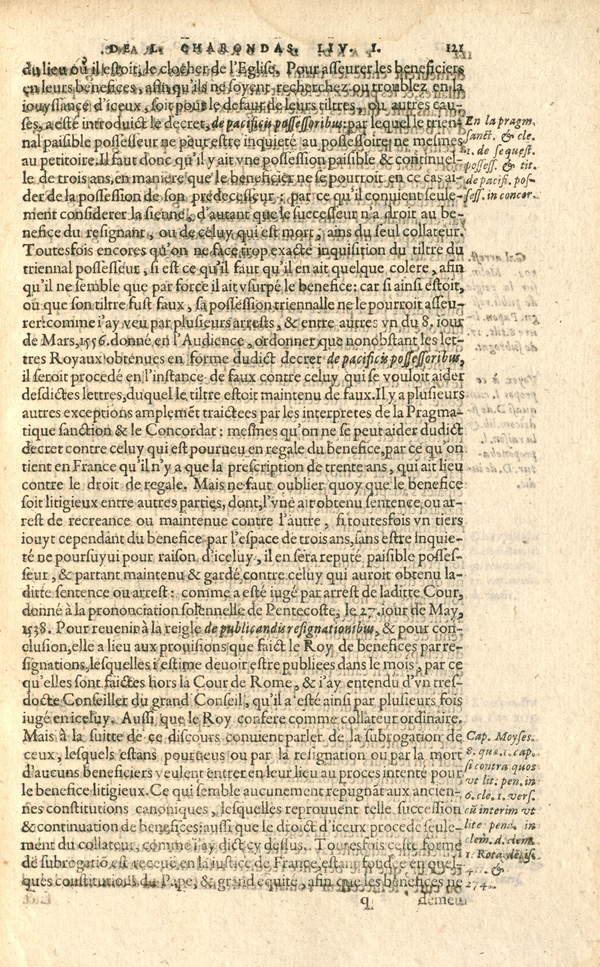 DE L. CHARONDAS, LIV. I. 121
du lieu où il estoit, le clocher de l'Eglise. Pour asseurer les beneficiers
en leurs benefices, afin qu'ils ne soyent recherchez ou troublez en la
iouyssance d'iceux, soit pour le defaut de leurs tiltres, ou autres cau-
ses, a esté introduict le decret, de pacificis possessoribus: par lequel le trien
nal paisible possesseur ne peut estre inquieté au possessoire, ne mesmes
au petitoire. Il faut donc qu'il y ait vne possession paisible & continuel-
le de trois ans, en maniere que le beneficier ne se pourroit en ce cas ai-
der de la possession de son predecesseur: par ce qu'il conuient seule-
ment considerer la sienne, d'autant que le successeur n'a droit au be-
nefice du resignant, ou de celuy qui est mort, ains du seul collateur.
Toutesfois encores qu'on ne face trop exacte inquisition du tiltre du
triennal possesseur, si est ce qu'il faut qu'il en ait quelque colere, afin
qu'il ne semble que par force il ait vsurpé le benefice: car si ainsi estoit,
ou que son tiltre fust faux, sa possession triennalle ne le pourroit asseu-
rer: comme i'ay veu par plusieurs arrests, & entre autres vn du 8. iour
de Mars, 1556. donné en l'Audience, ordonner que nonobstant les let-
tres Royaux obtenues en forme dudict decret de pacificis possessoribus,
il seroit procedé en l'instance de faux contre celuy qui se vouloit aider
desdictes lettres, duquel le tiltre estoit maintenu de faux. Il y a plusieurs
autres exceptions amplemēt traictees par les interpretes de la Pragma-
tique sanction & le Concordat: mesmes qu'on ne se peut aider dudict
decret contre celuy qui est pourueu en regale du benefice, par ce qu'on
tient en France qu'il n'y a que la prescription de trente ans, qui ait lieu
contre le droit de regale. Mais ne faut oublier quoy que le benefice
soit litigieux entre autres parties, dont, l'vne ait obtenu sentence ou ar-
rest de recreance ou maintenue contre l'autre, si toutesfois vn tiers
iouyt cependant du benefice par l'espace de trois ans, sans estre inquie-
té ne poursuyui pour raison d'iceluy, il en sera reputé paisible posses-
seur, & partant maintenu & gardé contre celuy qui auroit obtenu la-
ditte sentence ou arrest: comme a esté iugé par arrest de laditte Cour,
donné à la prononciation solennelle de Pentecoste, le 27. iour de May,
1538. Pour reuenir à la reigle de publicandis resignationibus, & pour con-
clusion, elle a lieu aux prouisions que faict le Roy de benefices par re-
signations, lesquelles i'estime deuoir estre publiees dans le mois, par ce
qu'elles sont faictes hors la Cour de Rome, & i'ay entendu d'vn tres-
docte Conseiller du grand Conseil, qu'il a esté ainsi par plusieurs fois
iugé en iceluy. Aussi que le Roy confere comme collateur ordinaire.
Mais à la suitte de ce discours conuient parler de la subrogation de
ceux, lesquels estans pourueus ou par la resignation ou par la mort
d'aucuns beneficiers veulent entrer en leur lieu au proces intenté pour
le benefice litigieux. Ce qui semble aucunement repugnāt aux ancien-
nes constitutions canoniques, lesquelles reprouuent telle succession
& continuation de benefices: aussi que le droict d'iceux procede seule-
ment du collateur, comme i'ay dict cy dessus. Toutesfois ceste forme
de subrogatiō est receue en la iustice de France, estant fondee en quel-
ques constitutions du Pape, & grand equité, afin que les benefices ne
q demeu-
En la pragm.
sanct. & cle.
1. de sequest.
possess. & tit.
de pacifi. pos-
sess. in concor.
Cap. Moyses.
8. qua. 1. cap.
si contra quos
vt lit. pen. in
6. cle. 1. vers.
cū interim vt
lite pend. in
clem. d. clem.
1. Rota decis.
4. &
274.